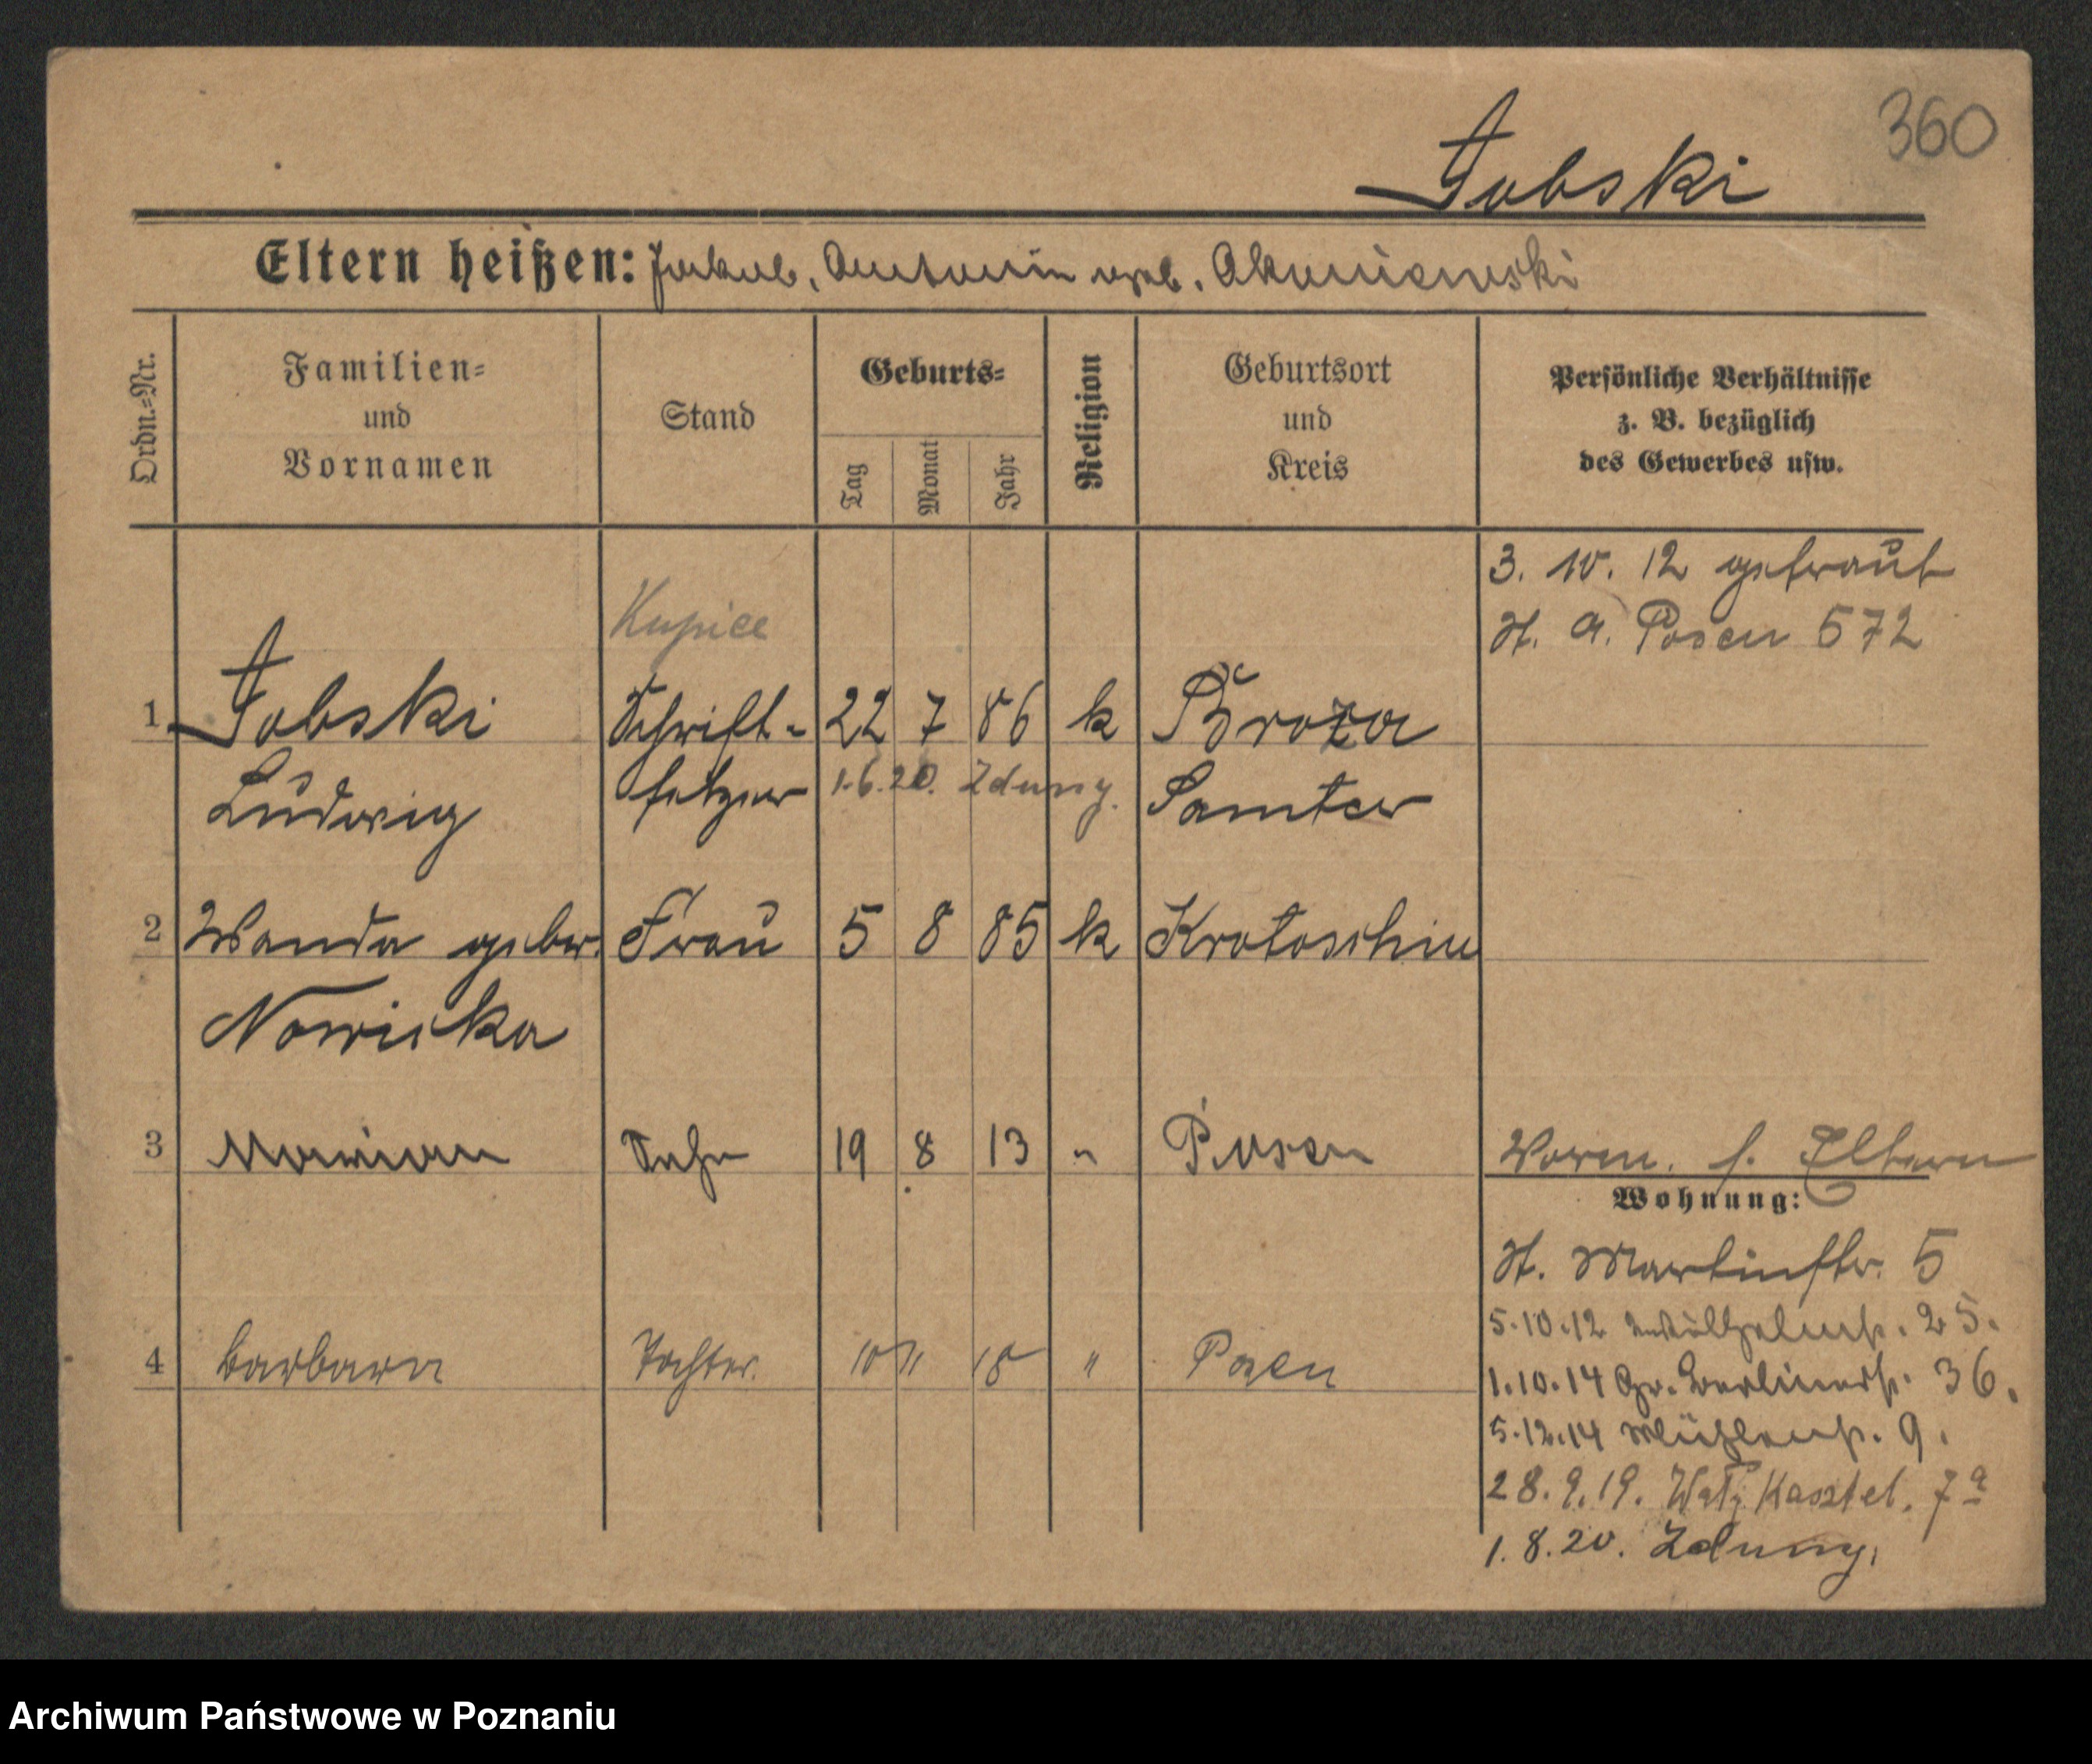 360
Jobski
Eltern heißen: Jakub, Antonin geb. Akuniewski
Ordn.=Nr.
Familien=
und
Vornamen
Stand
Geburts=
Tag
Monat
Jahr
Religion
Geburtsort
und
Kreis
Persönliche Verhältnisse
z. B. bezüglich
des Gewerbes usw.
3. 10. 12 getraut
St. A. Posen 572
Kupiec
1 Jobski Schrift- 22 7 86 k Broza
Ludwig setzer 1.6.20. Zduny. Samter
2 Wanda geber. Frau 5 8 85 k Krotoschin
Nowicka
3 Marian Sohn 19 8 13 " Posen Worm. s. Eltern
Wohnung:
St. Martinstr. 5
5.10.12 Wilhelmstr. 25.
4 Barbara Tochter. 10 11 18 " Posen 1.10.14 Gr. Berlinerstr. 36.
5.12.14 Mühlenstr. 9.
28.9.19. Wały Kasztel. 7a
1.8.20. Zduny.
Archiwum Państwowe w Poznaniu